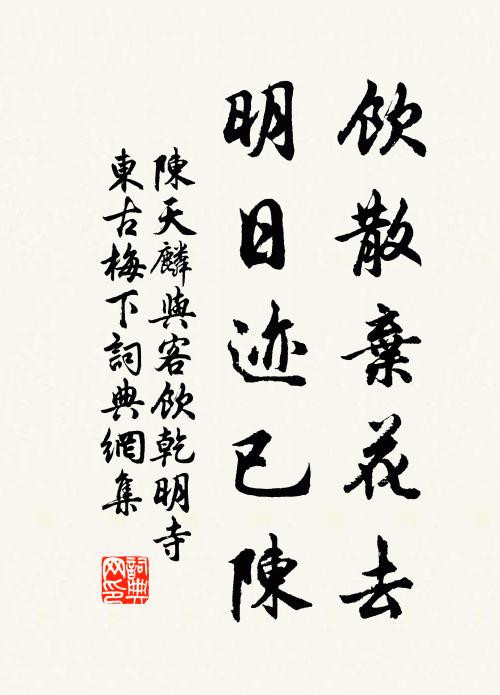 飲散棄花去
明日迹已陳
陳天麟與客飲乾明寺
東古梅下詞典網集
詞典
网印